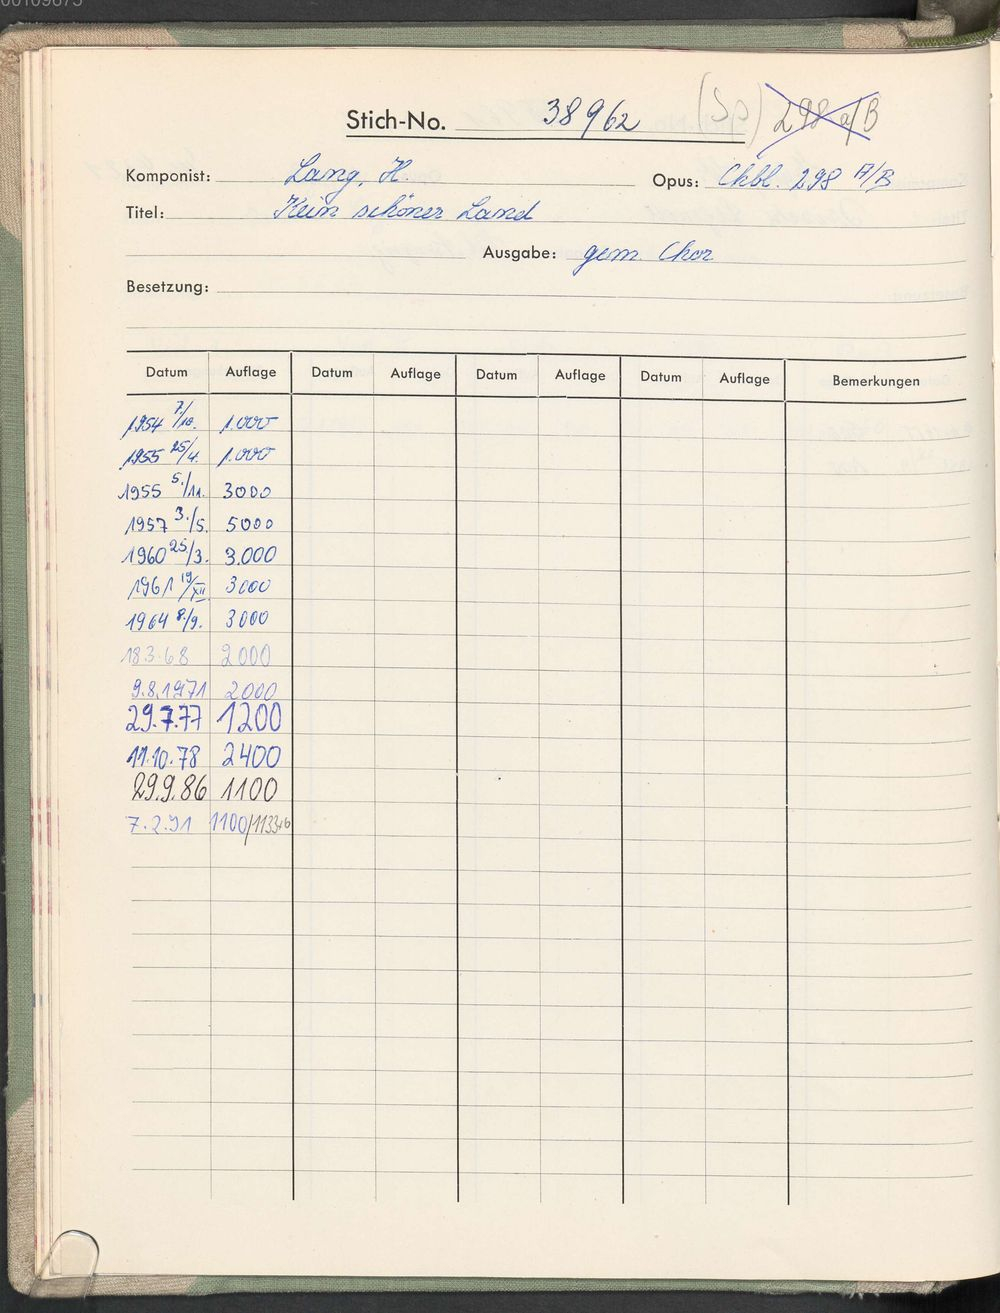 Stich-No. 38962 (Sp) 298 a/B
Komponist: Lang, H. Opus: Chbl. 298 A/B
Titel: Kein schöner Land
Ausgabe: gem. Chor
Besetzung:
Datum Auflage Datum Auflage Datum Auflage Datum Auflage Bemerkungen
1954 7/10. 1.000
1955 25/4. 1.000
1955 5./11. 3000
1957 3./5. 5000
1960 25/3. 3.000
1961 19/XII 3000
1964 8./9. 3000
18.3.68 2000
9.8.1971 2000
29.7.77 1200
11.10.78 2400
29.9.86 1100
7.2.91 1100/